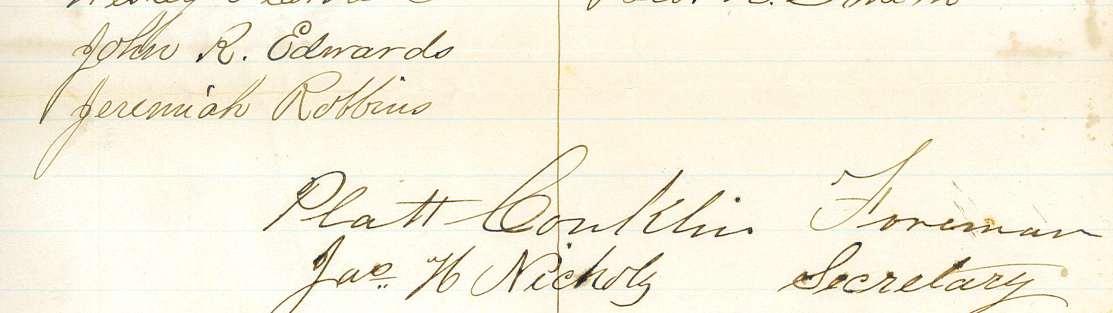 John R. Edwards
Jeremiah Robbins
Platt Conklin Foreman
Jas. H Nichols Secretary